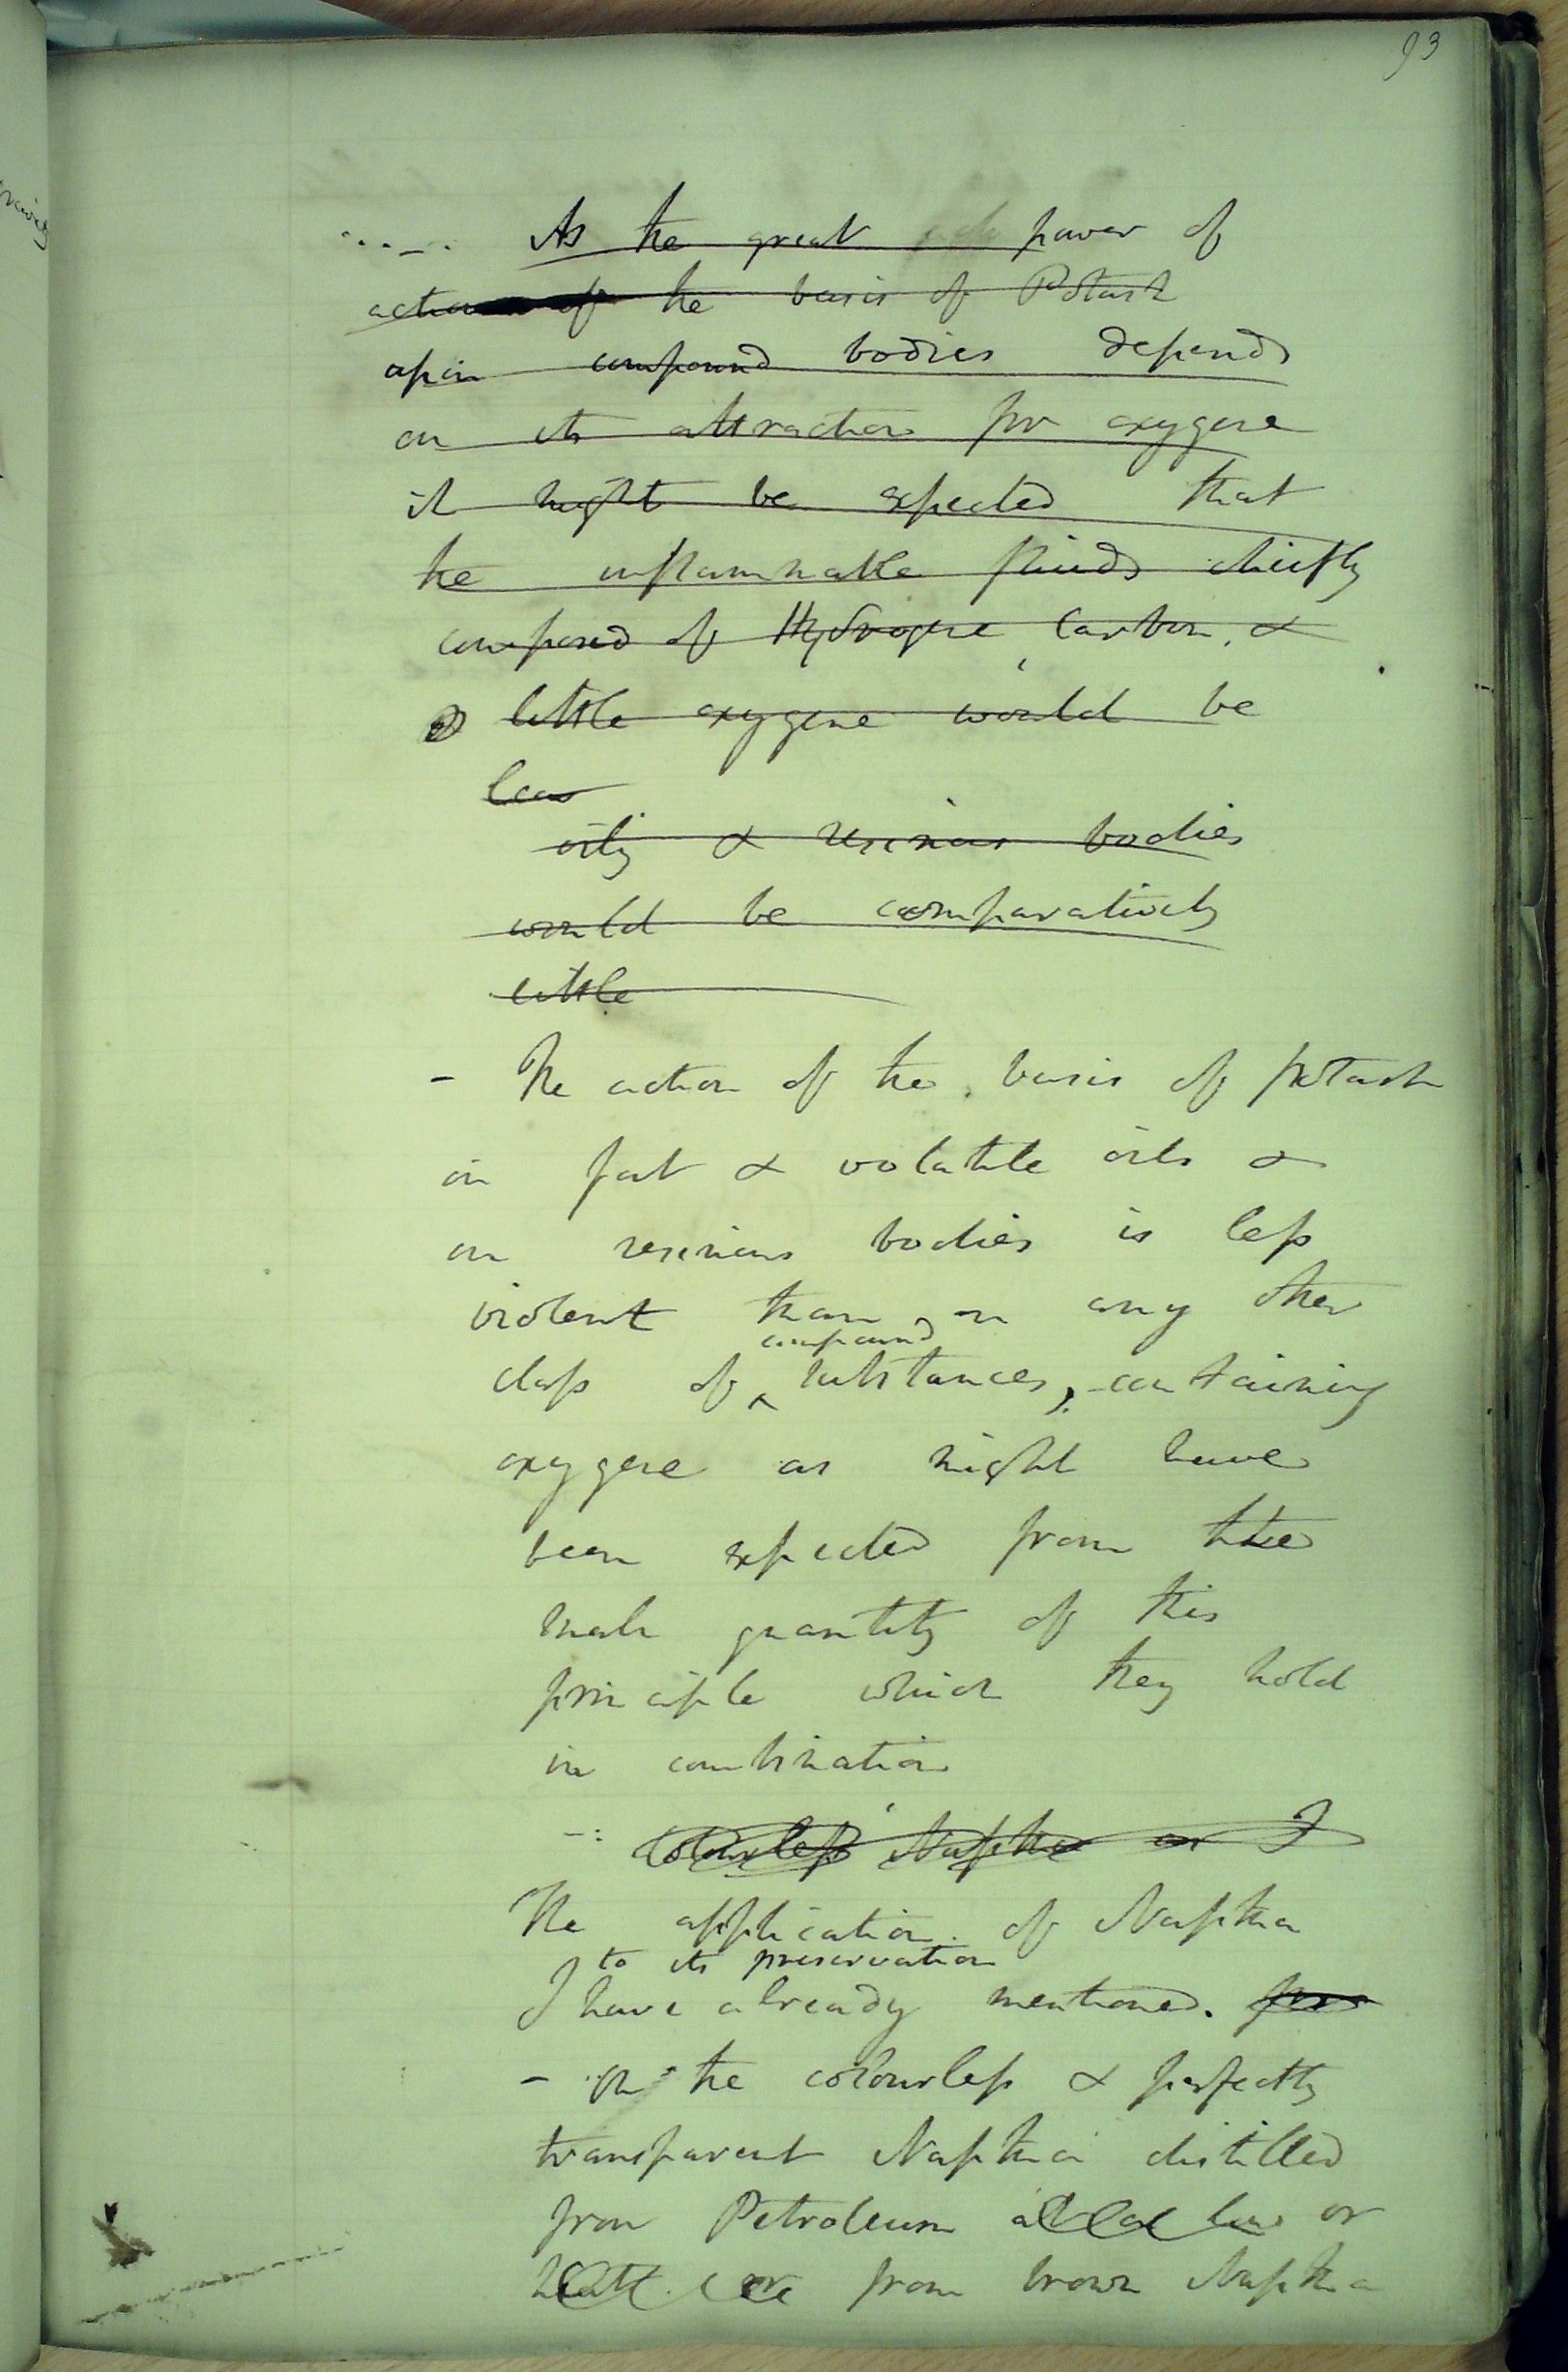 93
As the great power of
action of the basis of Potash
upon compound bodies depends
on its attraction for oxygene
it might be expected that
the inflammable fluids chiefly
composed of Hydrogene, Carbon, &
little oxygene would be
less
oily & resinous bodies
would be comparatively
little
- The action of the basis of potash
on fat & volatile oils &
on resinous bodies is less
violent than on any other
compound
class of substances, containing
oxygene as might have
been expected from the
small quantity of this
principle which they hold
in combination
-: Colourless Naptha as I
The application of Naptha
to its preservation
I have already mentioned. for
- On the colourless & perfectly
transparent Naptha distilled
from Petroleum at a low or
heat or from brown Naptha